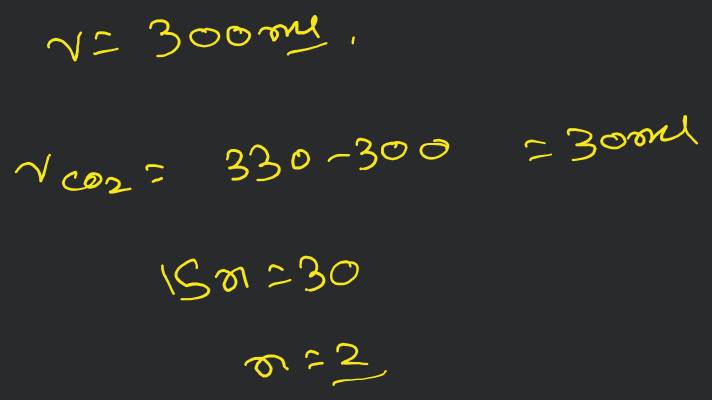 V = 300ml.
V CO2 = 330 - 300 = 30ml
15n = 30
n = 2